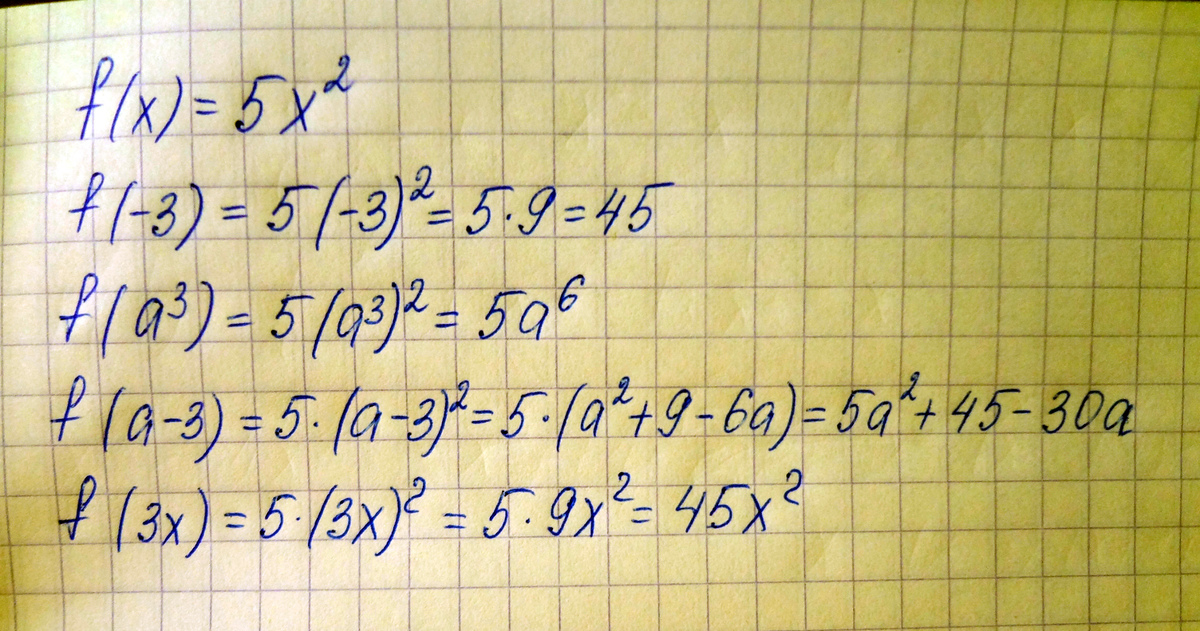 f(x) = 5x²
f(-3) = 5(-3)² = 5·9 = 45
f(a³) = 5(a³)² = 5a⁶
f(a-3) = 5·(a-3)² = 5·(a²+9-6a) = 5a²+45-30a
f(3x) = 5·(3x)² = 5·9x² = 45x²